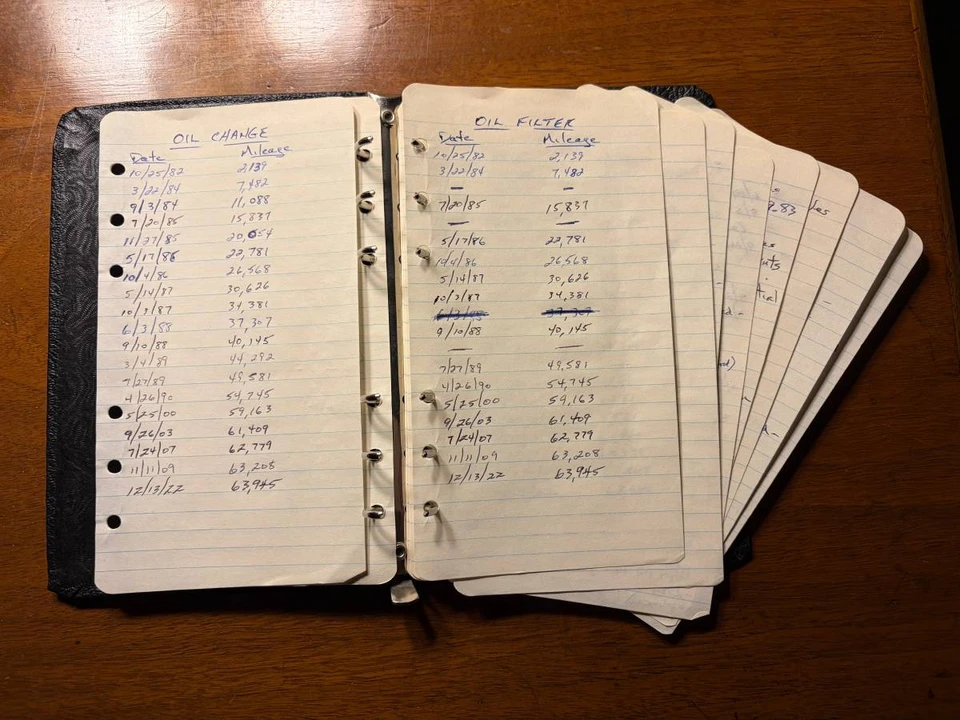 OIL CHANGE
Date Mileage
10/25/82 2,139
3/22/84 7,482
9/3/84 11,088
7/20/85 15,837
11/27/85 20,054
5/17/86 22,781
10/4/86 26,568
5/14/87 30,626
10/3/87 34,381
6/3/88 37,307
9/10/88 40,145
3/4/89 44,292
7/27/89 49,581
4/26/90 54,745
5/25/00 59,163
9/26/03 61,409
7/24/07 62,779
11/11/09 63,208
12/13/22 63,945
OIL FILTER
Date Mileage
10/25/82 2,139
3/22/84 7,482
— —
7/20/85 15,837
— —
5/17/86 22,781
10/4/86 26,568
5/14/87 30,626
10/3/87 34,381
6/3/88 37,307
9/10/88 40,145
— —
7/27/89 49,581
4/26/90 54,745
5/25/00 59,163
9/26/03 61,409
7/24/07 62,779
11/11/09 63,208
12/13/22 63,945